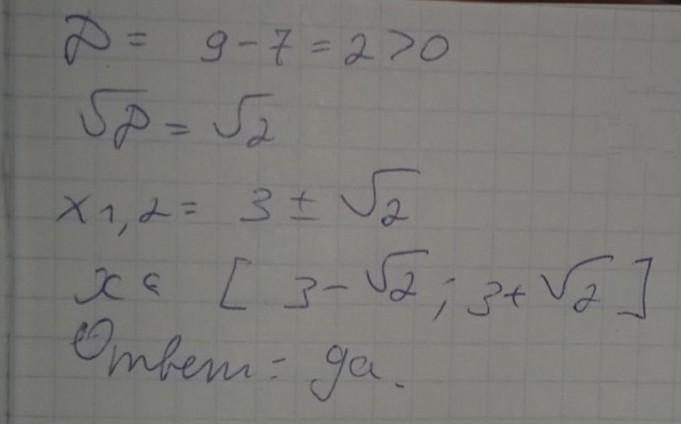 D = 9 - 7 = 2 > 0
√D = √2
x1,2 = 3 ± √2
x ∈ [ 3 - √2 ; 3 + √2 ]
Ответ: да.